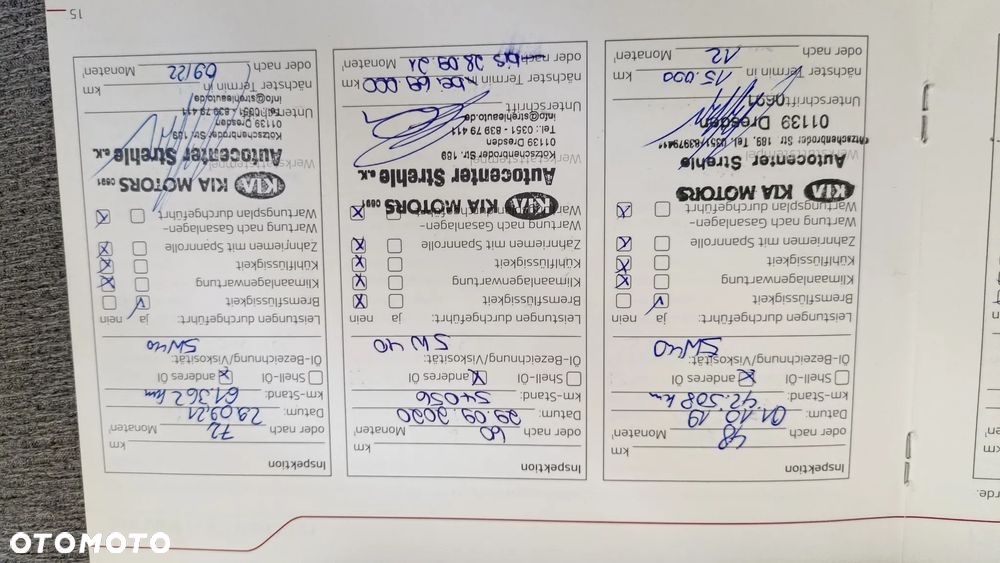 Inspektion
km
oder nach 48 Monaten¹
Datum: 01.10.19
km-Stand: 42.508 km
☐ Shell-Öl ☒ anderes Öl
Öl-Bezeichnung/Viskosität:
5W40
Leistungen durchgeführt: ja nein
Bremsflüssigkeit ☒ ☐
Klimaanlagenwartung ☐ ☒
Kühlflüssigkeit ☐ ☒
Zahnriemen mit Spannrolle ☐ ☒
Wartung nach Gasanlagen-
Wartungsplan durchgeführt ☐ ☒
KIA KIA MOTORS
Autocenter Strehle
Werkstattstempel
01139 Dresden
0691
Unterschrift
nächster Termin in 15.000 km
oder nach 12 Monaten¹
Inspektion
km
oder nach 60 Monaten¹
Datum: 29.09.2020
km-Stand: 54056
☐ Shell-Öl ☒ anderes Öl
Öl-Bezeichnung/Viskosität:
5W40
Leistungen durchgeführt: ja nein
Bremsflüssigkeit ☐ ☒
Klimaanlagenwartung ☐ ☒
Kühlflüssigkeit ☐ ☒
Zahnriemen mit Spannrolle ☐ ☒
Wartung nach Gasanlagen-
Wartungsplan durchgeführt ☐ ☒
KIA KIA MOTORS 0691
Autocenter Strehle e.K.
Werkstattstempel
Kötzschenbroder Str. 189
01139 Dresden
Tel.: 0351 - 839 79 411
info@strehleauto.de
Unterschrift
nächster Termin in 69.000 km
oder nach bis 28.09.21 Monaten¹
Inspektion
km
oder nach 72 Monaten¹
Datum: 29.09.21
km-Stand: 61.362 km
☐ Shell-Öl ☒ anderes Öl
Öl-Bezeichnung/Viskosität:
5W40
Leistungen durchgeführt: ja nein
Bremsflüssigkeit ☒ ☐
Klimaanlagenwartung ☐ ☒
Kühlflüssigkeit ☐ ☒
Zahnriemen mit Spannrolle ☐ ☒
Wartung nach Gasanlagen-
Wartungsplan durchgeführt ☐ ☒
KIA KIA MOTORS 0691
Autocenter Strehle e.K.
Kötzschenbroder Str. 189
01139 Dresden
Tel. 0351 - 839 79 411
info@strehleauto.de
Unterschrift
nächster Termin in km
oder nach 09/22 Monaten¹
15
rde.
OTOMOTO